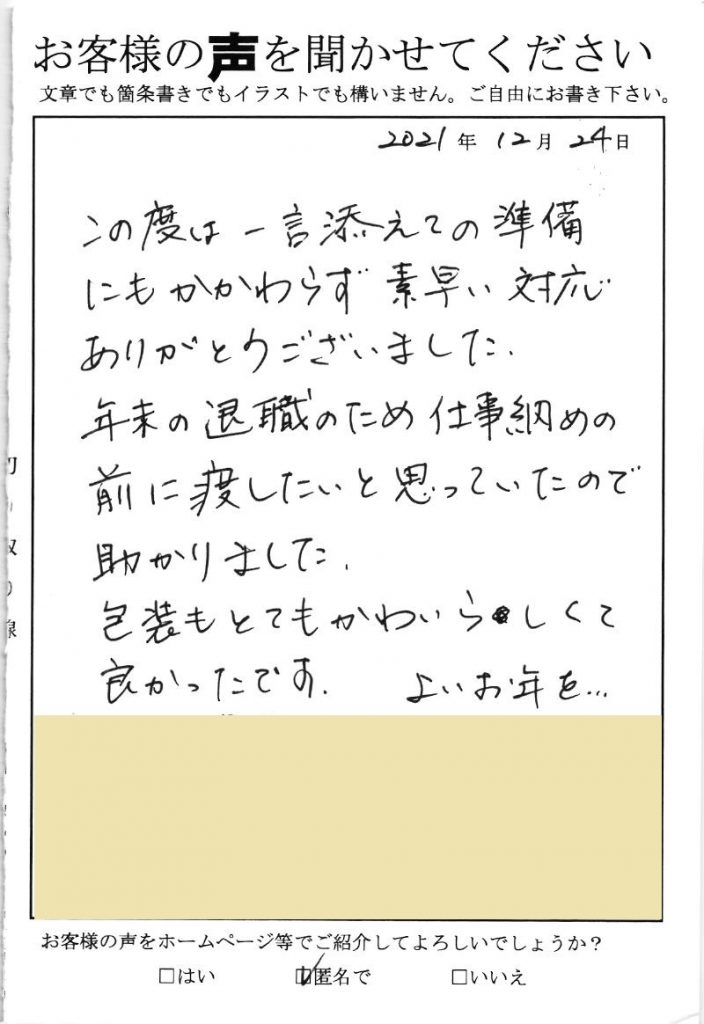 お客様の声を聞かせてください
文章でも箇条書きでもイラストでも構いません。ご自由にお書き下さい。
2021年 12月 24日
この度は一言添えての準備
にもかかわらず素早い対応
ありがとうございました.
年末の退職のため仕事納めの
前に渡したいと思っていたので
助かりました.
包装もとてもかわいらしくて
良かったです. よいお年を…
お客様の声をホームページ等でご紹介してよろしいでしょうか?
□はい ☑匿名で □いいえ